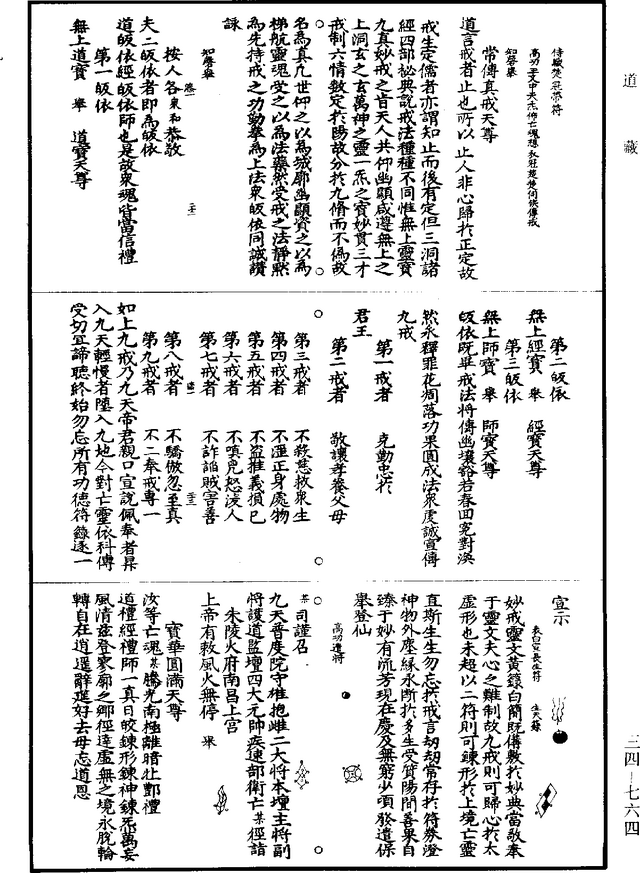 道藏
高功念文中夫先佈亡魂想衣冠楚楚伺候傳戒
知磬舉
常傳真戒天尊
道言戒者止也所以止人非心歸於正定故
戒生定儒者亦謂知止而後有定但三洞諸
經四部秘典說戒法種種不同惟無上靈寶
九真妙戒之旨天人共仰幽顯咸遵無上之
上洞玄之玄萬神之靈一炁之寶妙貫三才
戒制六情數定於陽故分於九脩而不偽故
名為真凡世仰之以為城郭幽顯資之以為
梯航靈魂受之以為法藥然受戒之法靜默
為先持戒之功勤拳為上法衆皈依同誠讚
詠
知磬舉
按人各衆和恭敬
夫二皈依者即為皈依
道皈依經皈依師也是故衆魂皆當信禮
第一皈依
無上道寶 舉 道寶天尊
第二皈依
無上經寶 舉 經寶天尊
第三皈依
無上師寶 舉 師寶天尊
皈依既畢戒法將傳幽壤豁若春回冤對渙
然氷釋罪花凋落功果圓成法衆虔誠宣傳
九戒
第一戒者 克勤忠於
君王
第二戒者 敬讓孝養父母
第三戒者 不殺慈救衆生
第四戒者 不淫正身處物
第五戒者 不盜推義損己
第六戒者 不嗔兇怒淩人
第七戒者 不詐謟賊害善
第八戒者 不驕傲忽至真
第九戒者 不二奉戒專一
如上九戒乃九天帝君親口宣說佩奉者昇
入九天輕慢者墮入九地今對亡靈依科傳
受切宜諦聽終始勿忘所有功德符籙逐一
宣示
表白宣長生符 生天籙
妙戒靈文黃籙白簡既備敷於妙典當敬奉
于靈文夫心之難制故九戒則可歸心於太
虛形也未超以二符則可鍊形於上境亡靈
直斯生生勿忘於戒言劫劫常存於符券澄
神物外塵緣永斷於多生受質陽間善果自
臻于妙有流芳現在慶及無窮少頃發遣保
舉登仙
高功遣將
某司謹召
九天普度院守雄抱雌二大將本壇主將副
將護道監壇四大元帥疾速部衛亡某徑詣
朱陵火府南昌上宮
上帝有敕風火無停 舉
寶華圓滿天尊
汝等亡魂某騰光南極離暗壯酆禮
道禮經禮師一真日皎鍊形鍊神鍊炁萬妄
風清茲登寥廓之鄉徑達虛無之境永脫輪
轉自在逍遙辭進好去毋忘道恩
三四—七六四